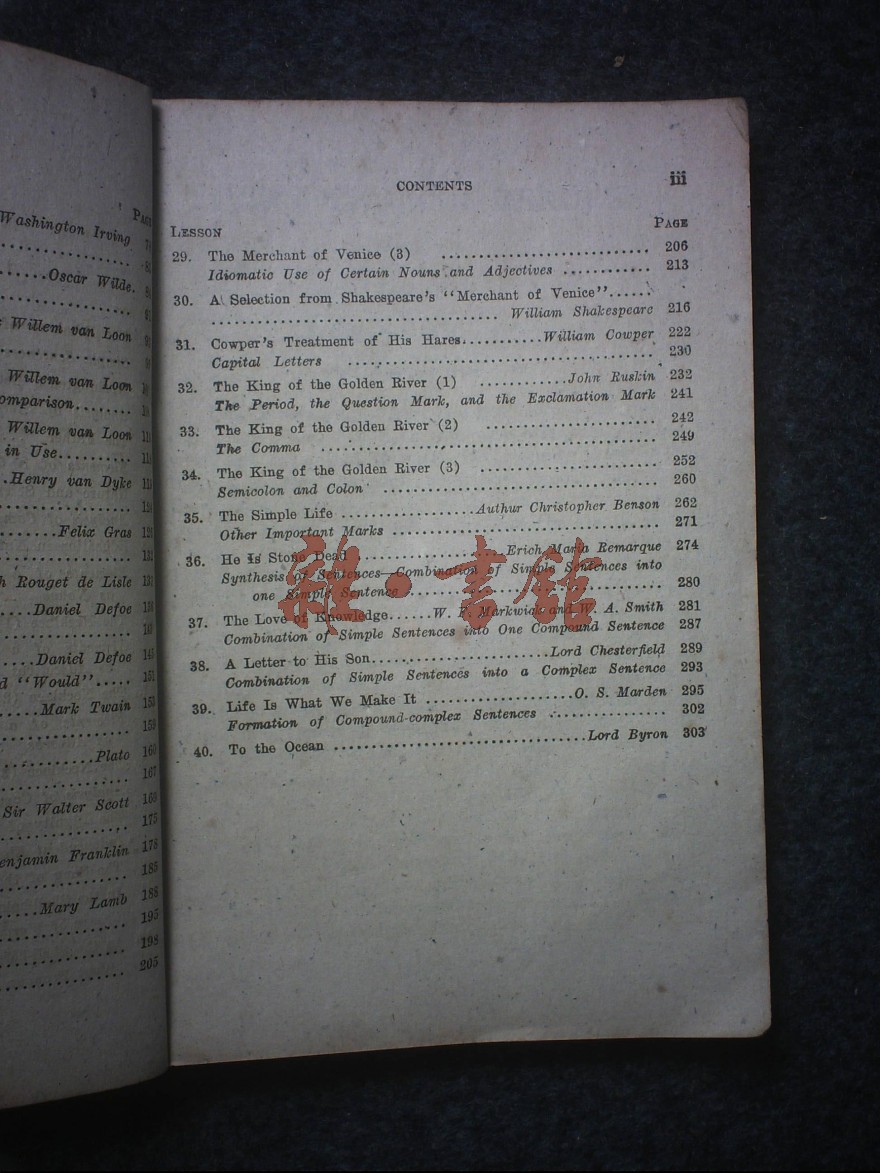 PAGE
Washington Irving
Oscar Wilde.
Willem van Loon
Willem van Loon
omparison........
Willem van Loon
in Use..........
.Henry van Dyke
.......Felix Gras
Rouget de Lisle
....Daniel Defoe
....Daniel Defoe
d "Would".....
.....Mark Twain
...........Plato
167
Sir Walter Scott 169
175
enjamin Franklin 178
185
.....Mary Lamb 188
195
198
205
CONTENTS iii
LESSON PAGE
29. The Merchant of Venice (3) ........................... 206
Idiomatic Use of Certain Nouns and Adjectives ............ 213
30. A Selection from Shakespeare's "Merchant of Venice"......
.................................... William Shakespeare 216
31. Cowper's Treatment of His Hares..........William Cowper 222
Capital Letters ...................................... 230
32. The King of the Golden River (1) ............John Ruskin 232
The Period, the Question Mark, and the Exclamation Mark 241
33. The King of the Golden River (2) ...................... 242
The Comma .......................................... 249
34. The King of the Golden River (3) ....................... 252
Semicolon and Colon ................................... 260
35. The Simple Life ..................Authur Christopher Benson 262
Other Important Marks ................................. 271
36. He is Stone Dead ....................Erich Maria Remarque 274
Synthesis of Sentences—Combination of Simple Sentences into
one Simple Sentence ................................ 280
37. The Love of Knowledge......W. P. Markwick and W. A. Smith 281
Combination of Simple Sentences into One Compound Sentence 287
38. A Letter to His Son........................Lord Chesterfield 289
Combination of Simple Sentences into a Complex Sentence 293
39. Life Is What We Make It ....................O. S. Marden 295
Formation of Compound-complex Sentences ................ 302
40. To the Ocean .................................Lord Byron 303
雜·書館